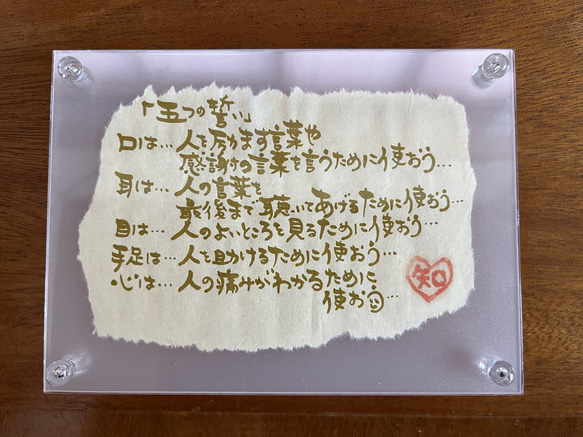 「五つの誓い」
口は…人を励ます言葉や
感謝の言葉を言うために使おう…
耳は…人の言葉を
最後まで聴いてあげるために使おう…
目は…人のよいところを見るために使おう…
手足は…人を助けるために使おう…
心は…人の痛みがわかるために
使おう…
知